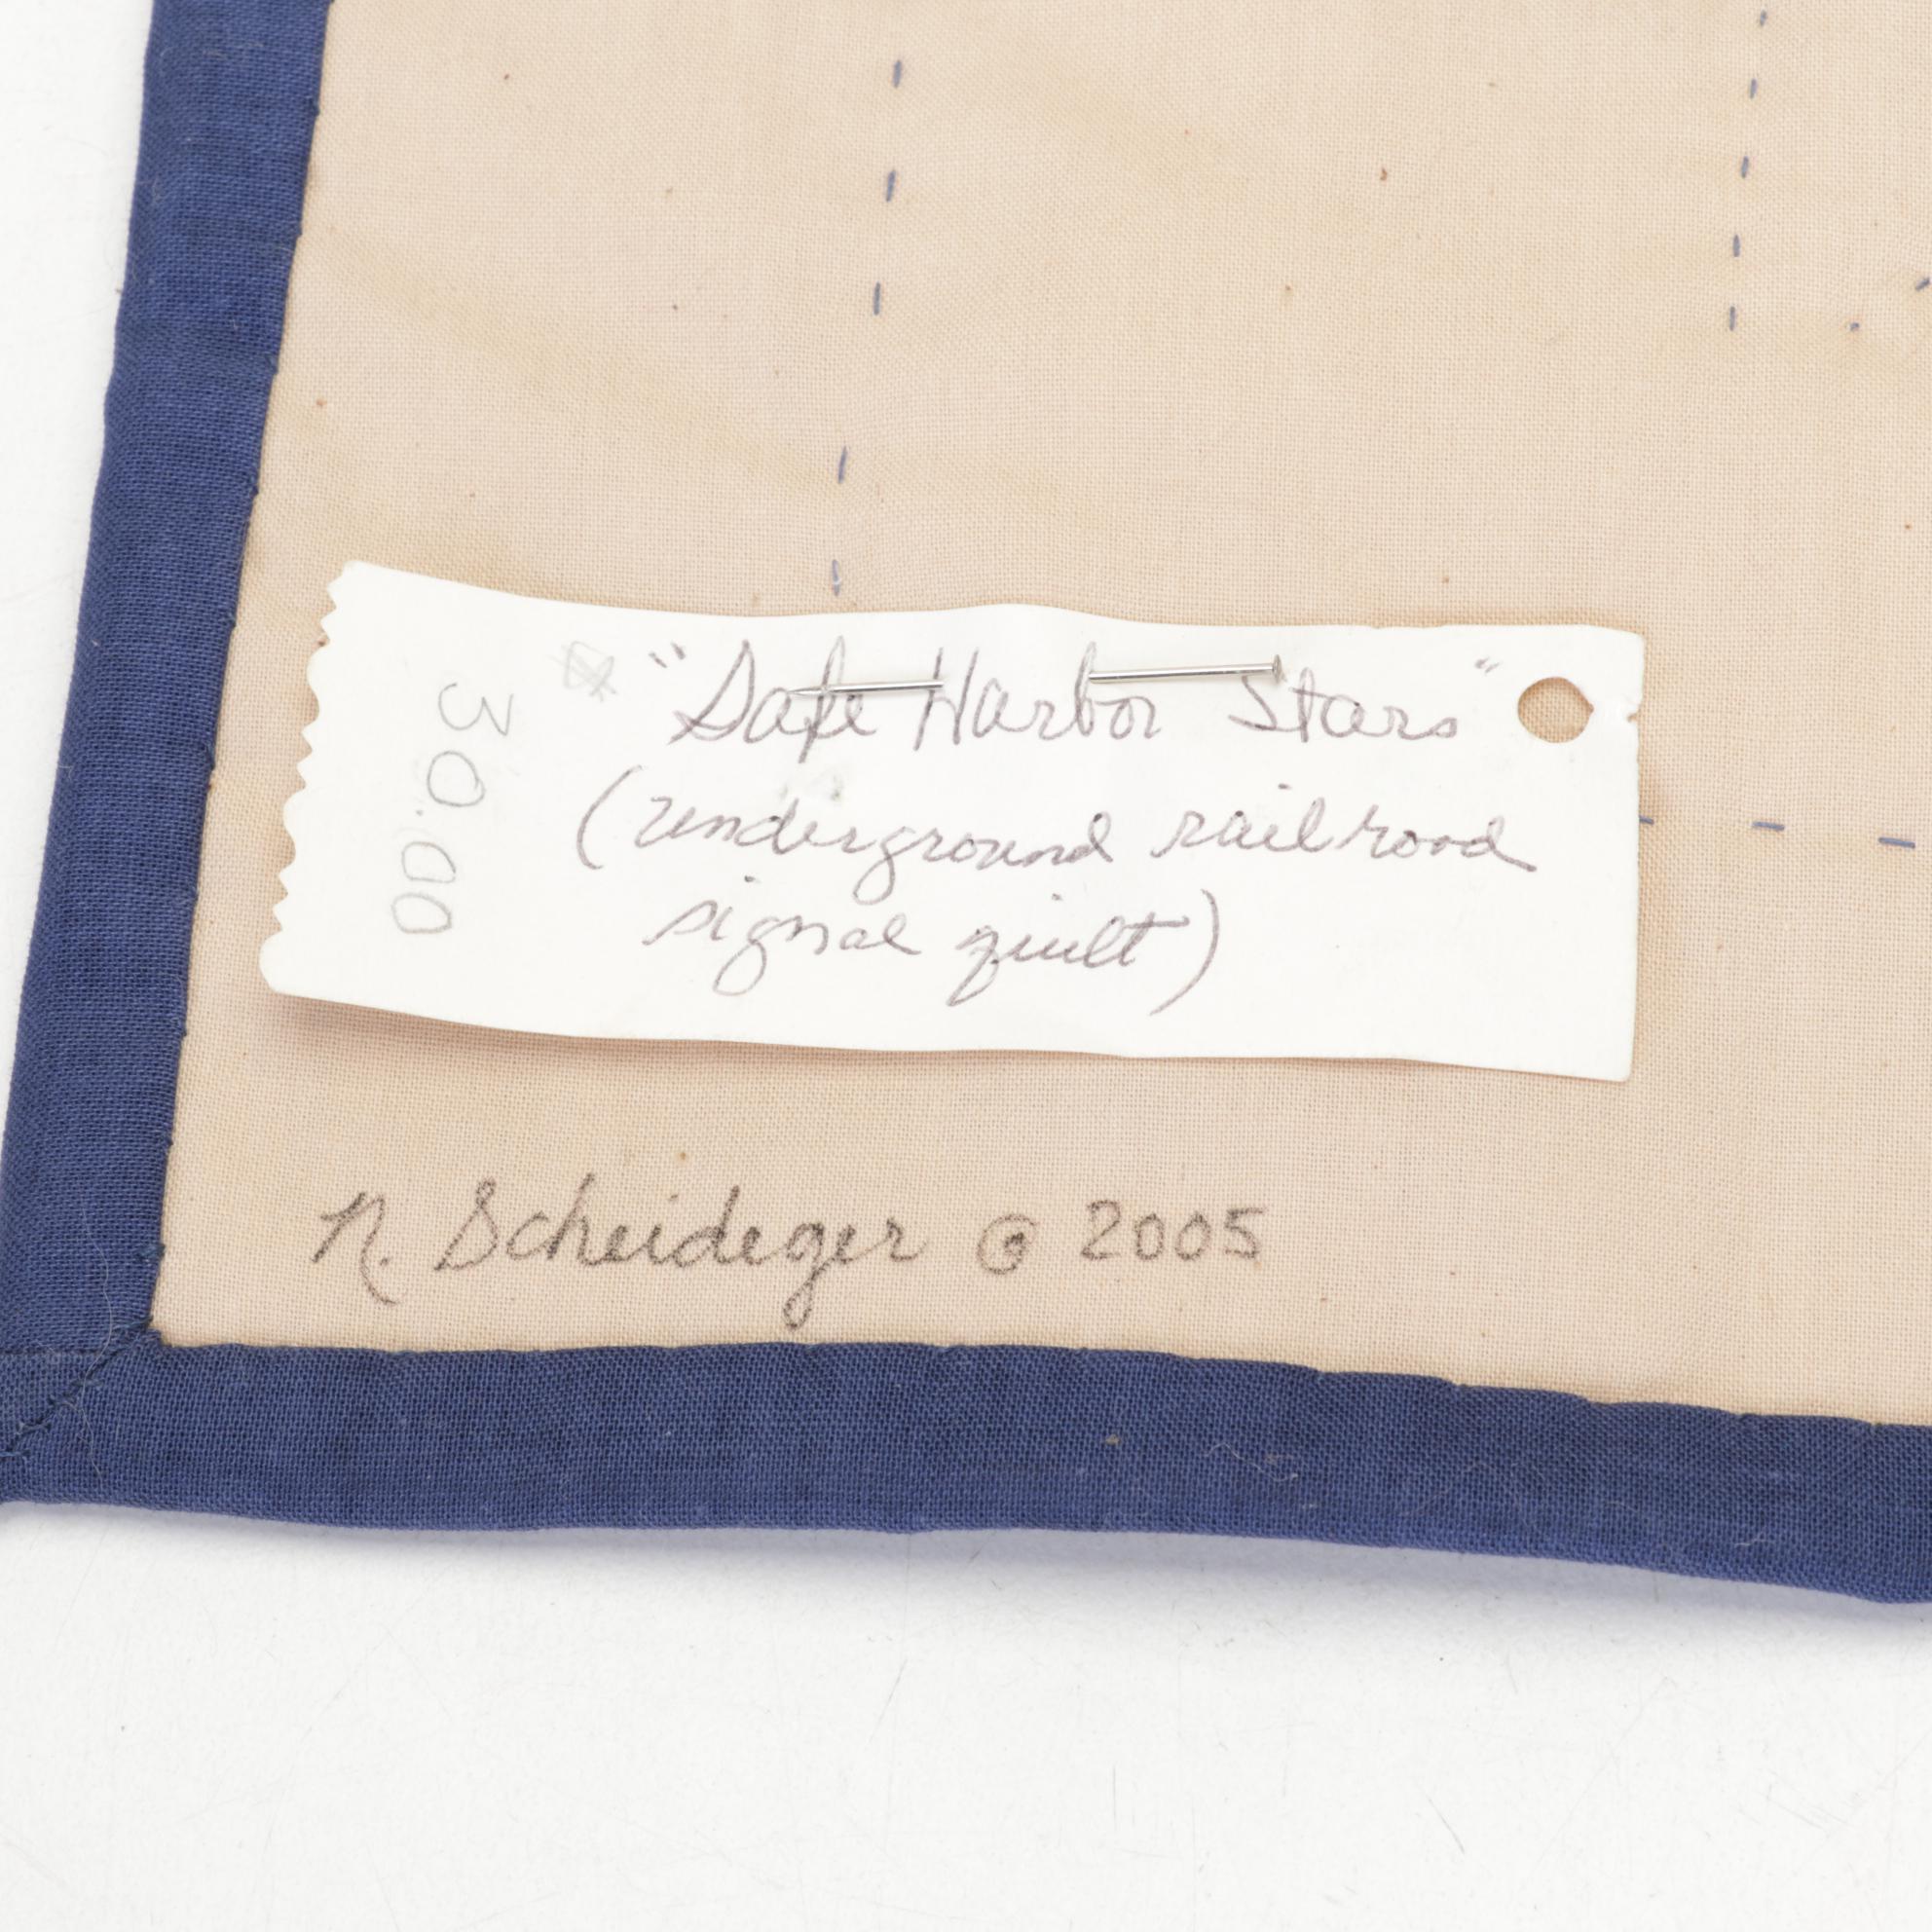 "Safe Harbor Stars"
(underground railroad
signal quilt)
30.00
N. Scheideger © 2005